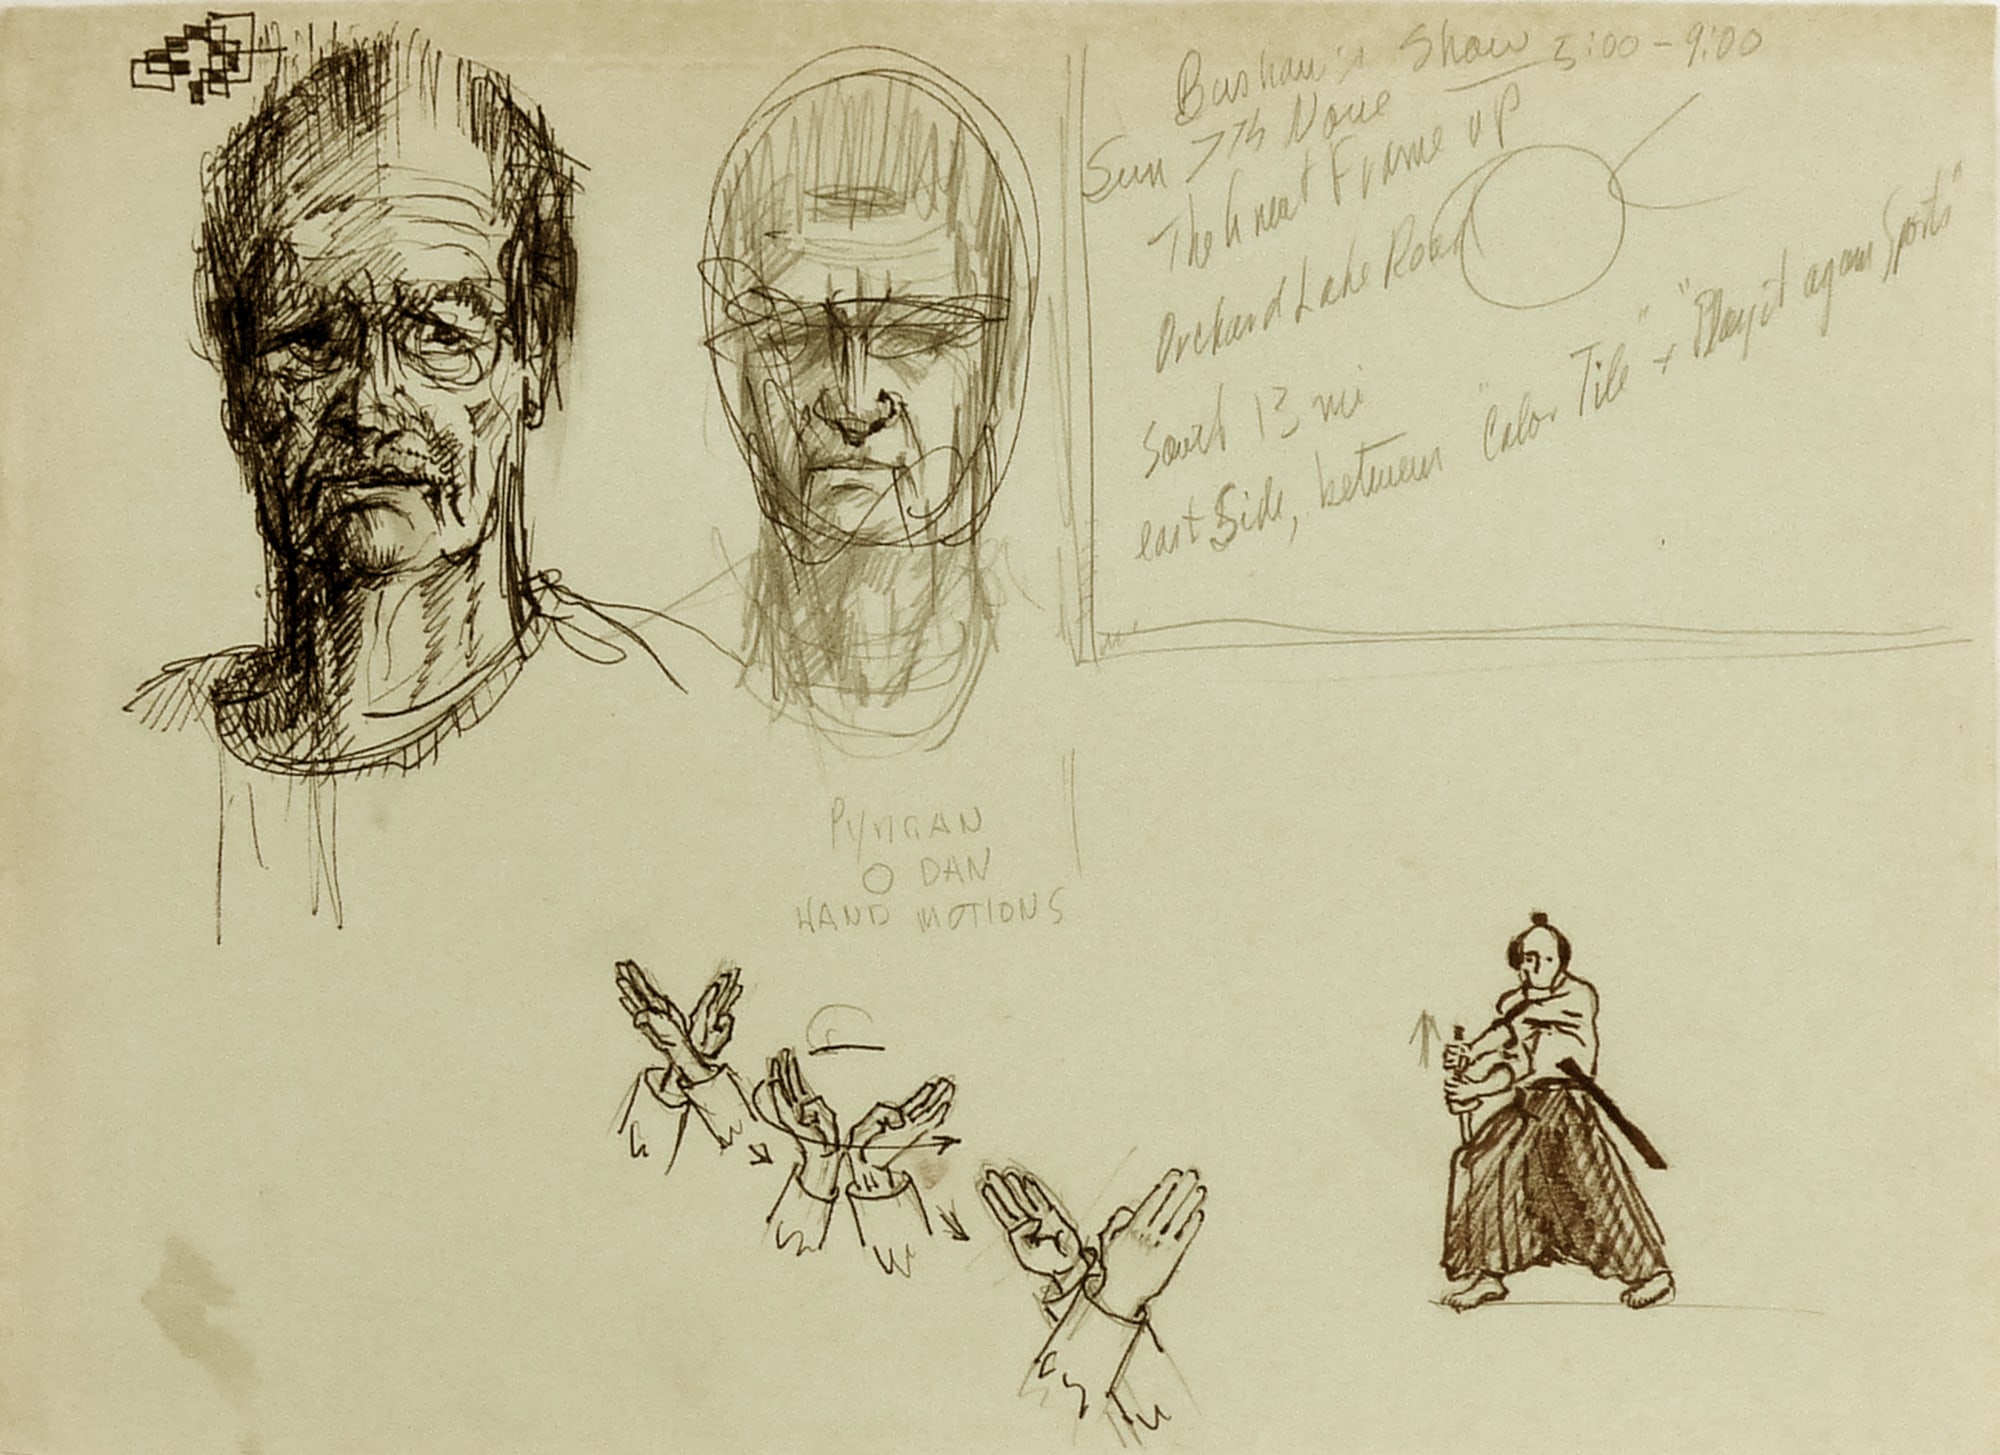 Bushau's Show 5:00 - 9:00
Sun 7th Nove
The Great Frame up
Orchard Lake Road
South 13 mi
east Side, between "Color Tile" + "Play it again Sports"
O DAN
HAND MOTIONS